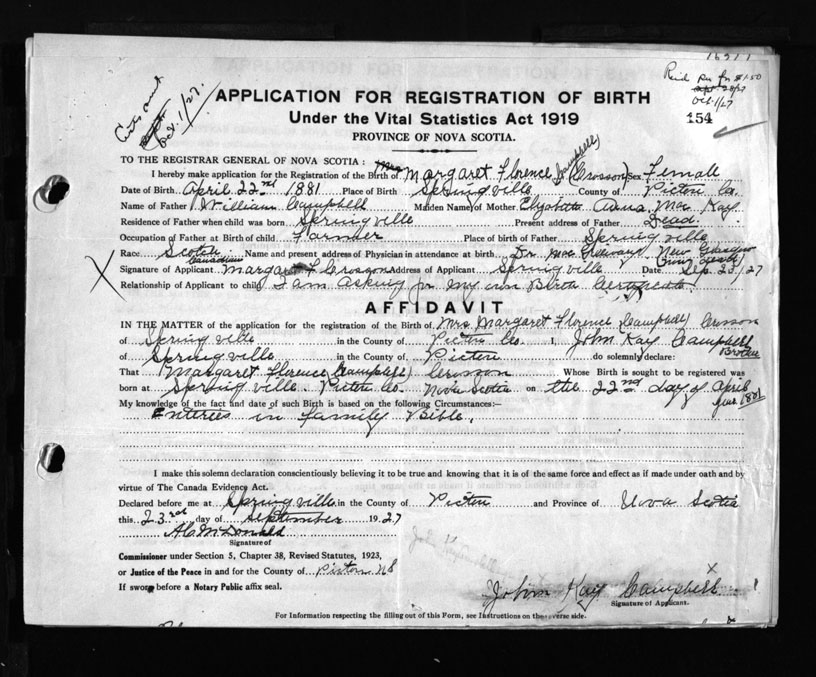 Paid
for $1.50
Oct. 1/27
Oct. 1/27.
154
APPLICATION FOR REGISTRATION OF BIRTH
Under the Vital Statistics Act 1919
PROVINCE OF NOVA SCOTIA.
TO THE REGISTRAR GENERAL OF NOVA SCOTIA:
I hereby make application for the Registration of the Birth of Mrs Margaret Florence (Campbell) Crosson Sex Female
Date of Birth April 22nd 1881 Place of Birth Springville County of Pictou Co.
Name of Father William Campbell Maiden Name of Mother Elizabeth Mac Kay
Residence of Father when child was born Springville Present address of Father Dead.
Occupation of Father at Birth of child Farmer Place of birth of Father Springville
Race Scotch Canadian Name and present address of Physician in attendance at birth Dr. New Glasgow
Signature of Applicant Margaret F Crosson Address of Applicant Springville Date Sep. 23/27
Relationship of Applicant to child I am asking for my own Birth Certificate.
AFFIDAVIT
IN THE MATTER of the application for the registration of the Birth of Mrs. Margaret Florence (Campbell) Crosson
of Springville in the County of Pictou Co. I, John Kay Campbell
of Springville in the County of Pictou do solemnly declare: Brother
That Margaret Florence (Campbell) Crosson Whose Birth is sought to be registered was
born at Springville Pictou Co. Nova Scotia on the 22nd day of April
1881
My knowledge of the fact and date of such Birth is based on the following Circumstances:—
Enteries in family Bible.
I make this solemn declaration conscientiously believing it to be true and knowing that it is of the same force and effect as if made under oath and by
virtue of The Canada Evidence Act.
Declared before me at Springville in the County of Pictou and Province of Nova Scotia
this 23rd day of September 1927
A C McDonald
Signature of
Commissioner under Section 5, Chapter 38, Revised Statutes, 1923,
or Justice of the Peace in and for the County of Pictou NS
If sworn before a Notary Public affix seal.
John Kay Campbell
Signature of Applicant.
For Information respecting the filling out of this Form, see Instructions on the reverse side.